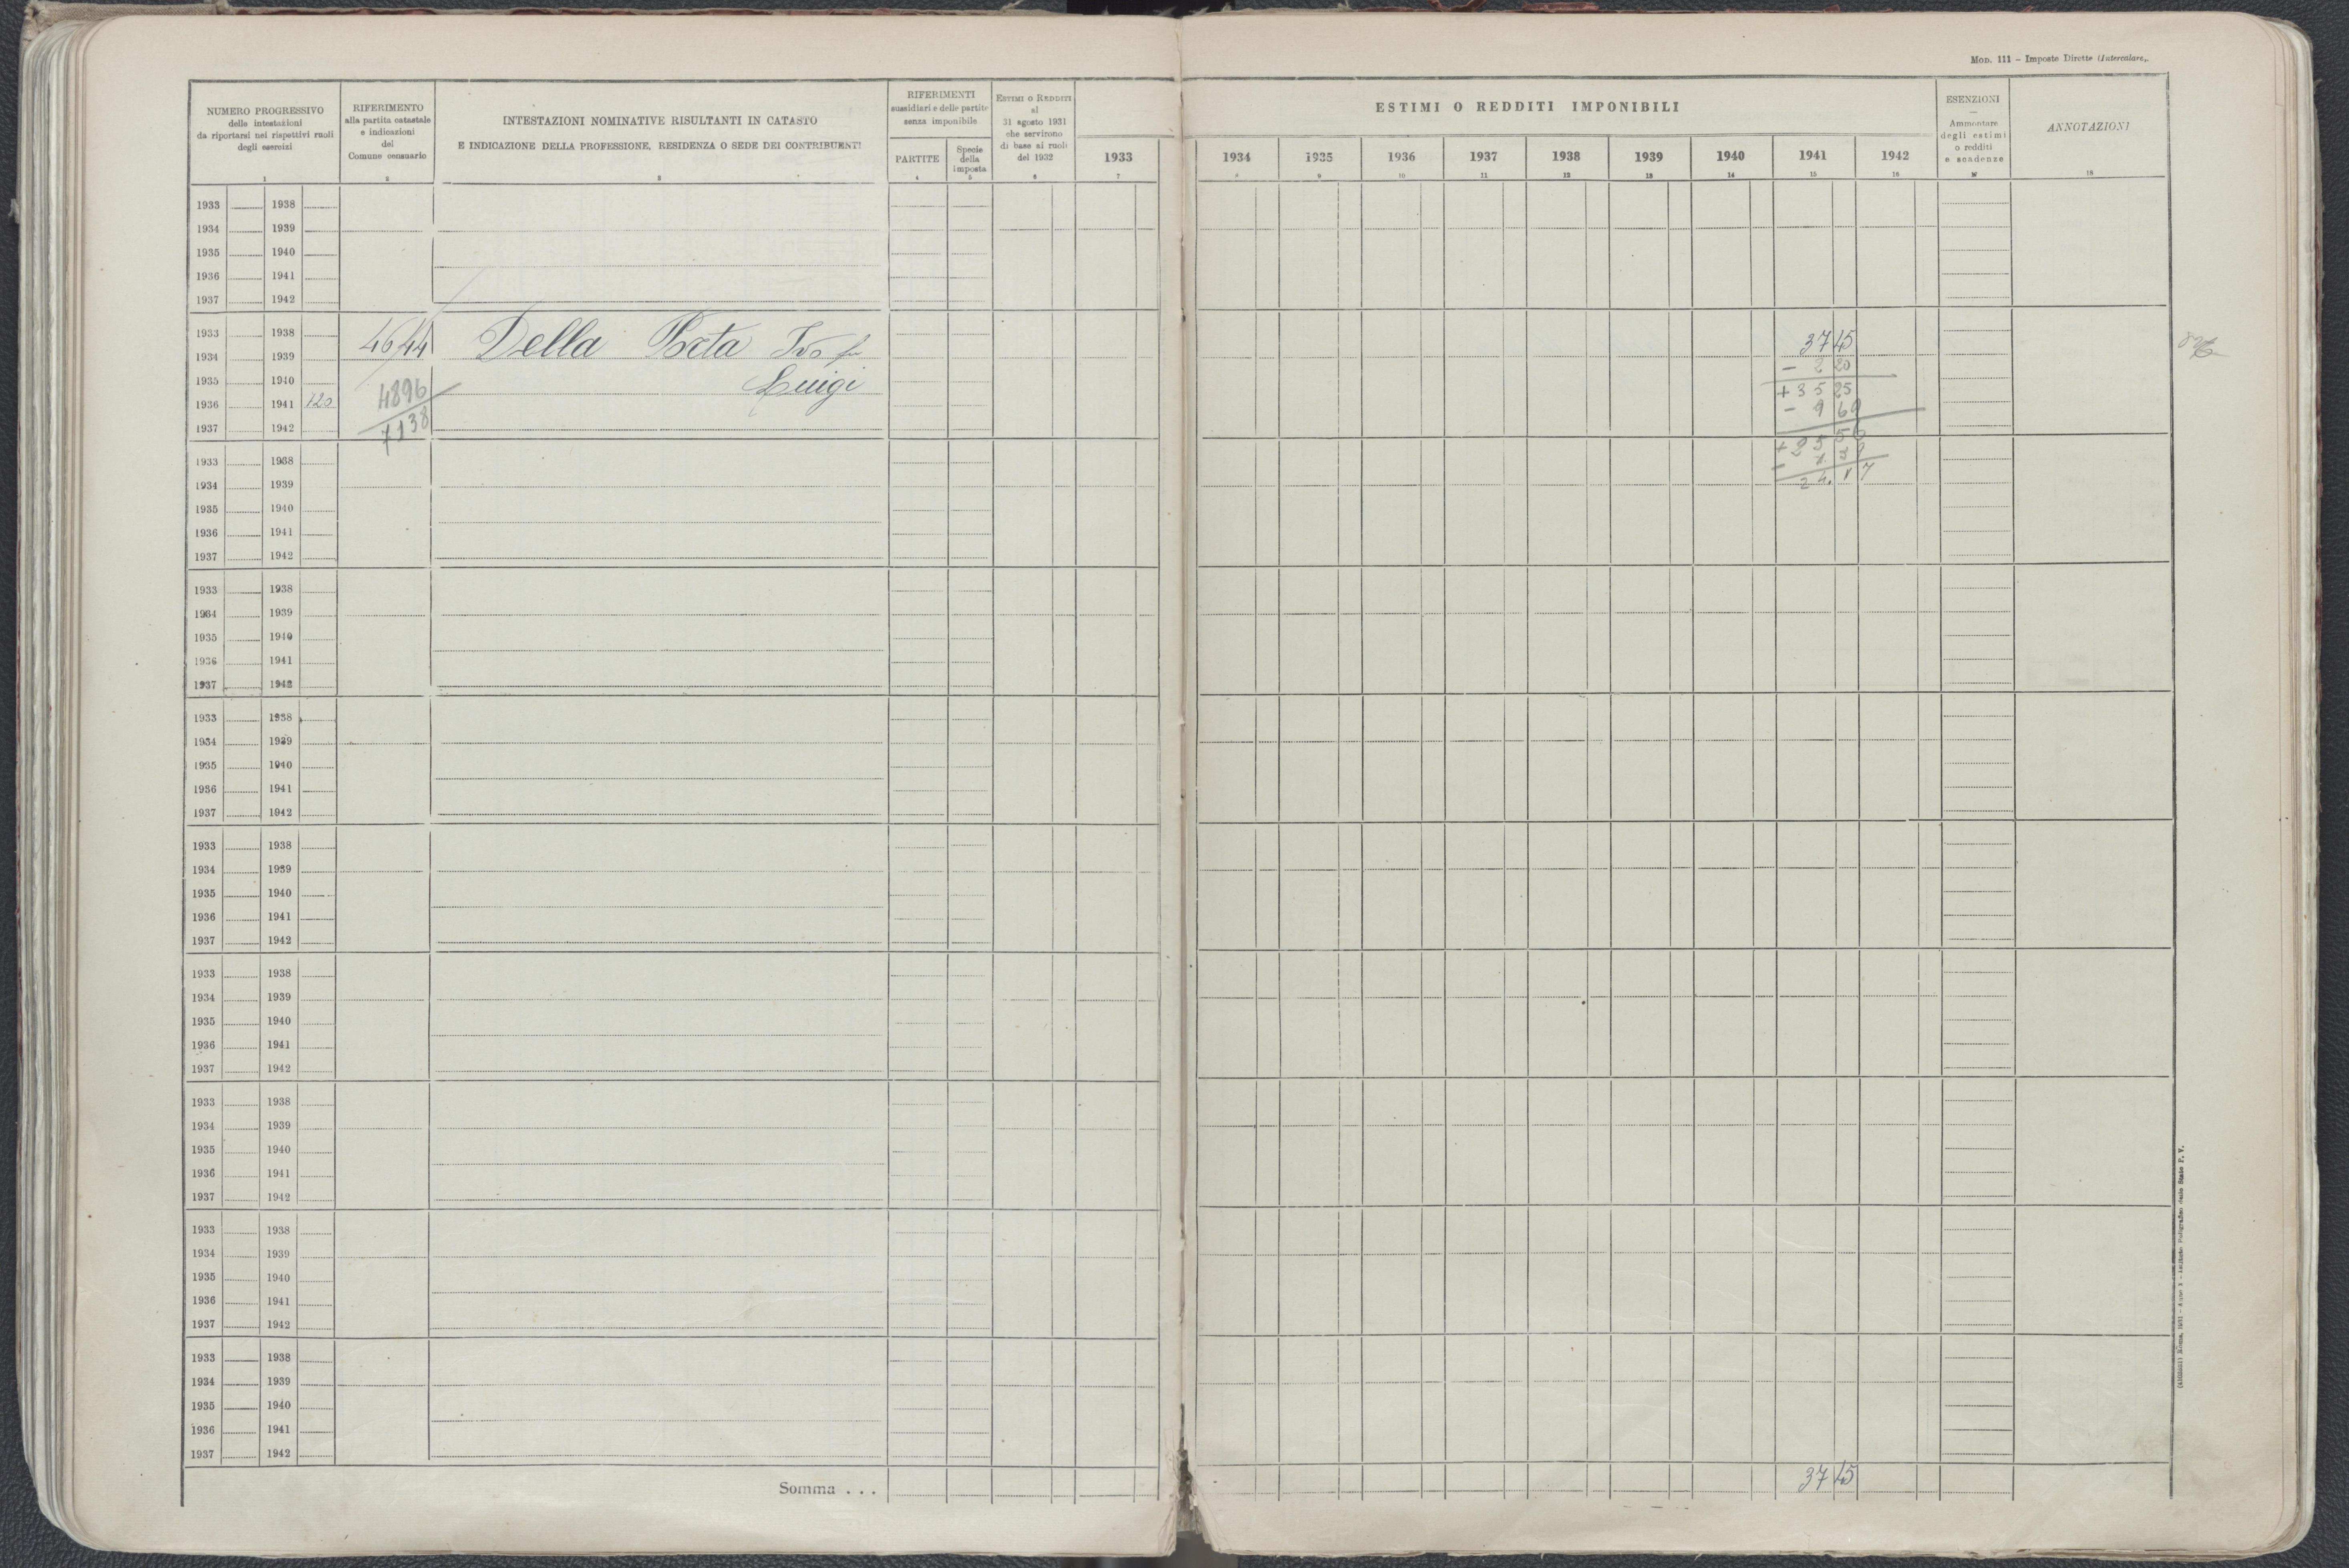 MOD. 111 – Imposte Dirette (Intercalare).
NUMERO PROGRESSIVO
delle intestazioni
da riportarsi nei rispettivi ruoli
degli esercizi
1
RIFERIMENTO
alla partita catastale
e indicazioni
del
Comune censuario
2
INTESTAZIONI NOMINATIVE RISULTANTI IN CATASTO
E INDICAZIONE DELLA PROFESSIONE, RESIDENZA O SEDE DEI CONTRIBUENTI
3
RIFERIMENTI
sussidiari e delle partite
senza imponibile
PARTITE
4
Specie
della
imposta
5
ESTIMI O REDDITI
al
31 agosto 1931
che servirono
di base ai ruoli
del 1932
6
ESTIMI O REDDITI IMPONIBILI
1933 1934 1935 1936 1937 1938 1939 1940 1941 1942
7 8 9 10 11 12 13 14 15 16
ESENZIONI
—
Ammontare
degli estimi
o redditi
e scadenze
17
ANNOTAZIONI
18
1933 1938
1934 1939
1935 1940
1936 1941
1937 1942
1933 1938 4644 Della Porta Ivo fu 3745
1934 1939
1935 1940 Luigi - 2 20
1936 1941 120 4896 + 35 25
1937 1942 7138 - 9 69
+ 25 56
2417
1933 1938
1934 1939
1935 1940
1936 1941
1937 1942
1933 1938
1934 1939
1935 1940
1936 1941
1937 1942
1933 1938
1934 1939
1935 1940
1936 1941
1937 1942
1933 1938
1934 1939
1935 1940
1936 1941
1937 1942
1933 1938
1934 1939
1935 1940
1936 1941
1937 1942
1933 1938
1934 1939
1935 1940
1936 1941
1937 1942
1933 1938
1934 1939
1935 1940
1936 1941
1937 1942
1933 1938
1934 1939
1935 1940
1936 1941
1937 1942
Somma . . . 3745
Roma, 1931 – Anno X – Istituto Poligrafico dello Stato P. V.